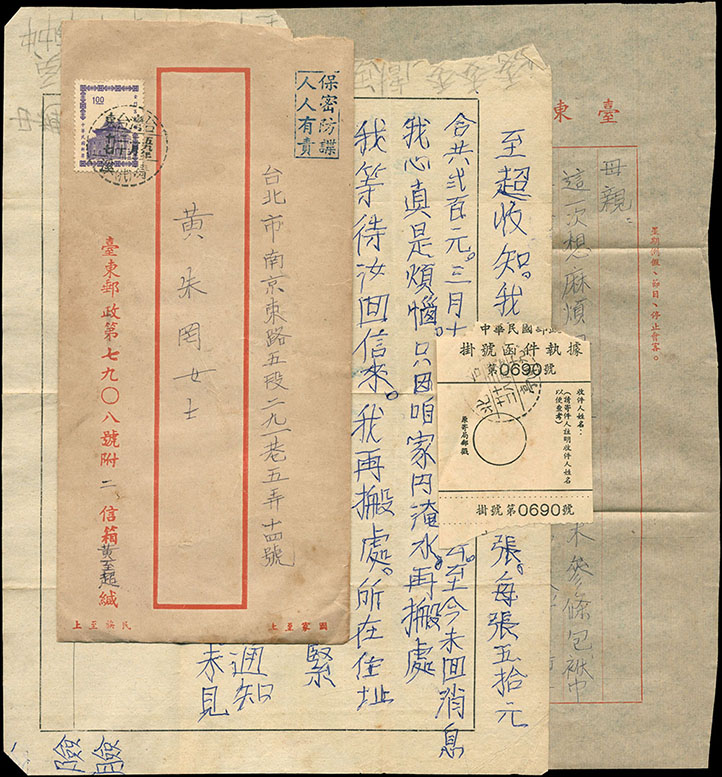 臺東
星期例假、節日、停止會客。
母親：
這一次想麻煩
參條包袱巾
至超收知。我
張。每張五拾元
合共貳百元。三月十
至今未回消息
我心真是煩惱。只因咱家内淹水。再搬處
我等待汝回信來。我再搬處。所在住址
緊
通知
未見
險
險
中華民國郵政
掛號函件執據
第0690號
收件人姓名：
(請寄件人註明收件人姓名
以便查考)
原寄局郵戳
掛號第0690號
保密防諜
人人有責
1.00
台北市南京東路五段二九一巷五弄十四號
黄朱罔女士
臺東郵政第七九〇八號附二信箱黃至超緘
國家至上
民族至上